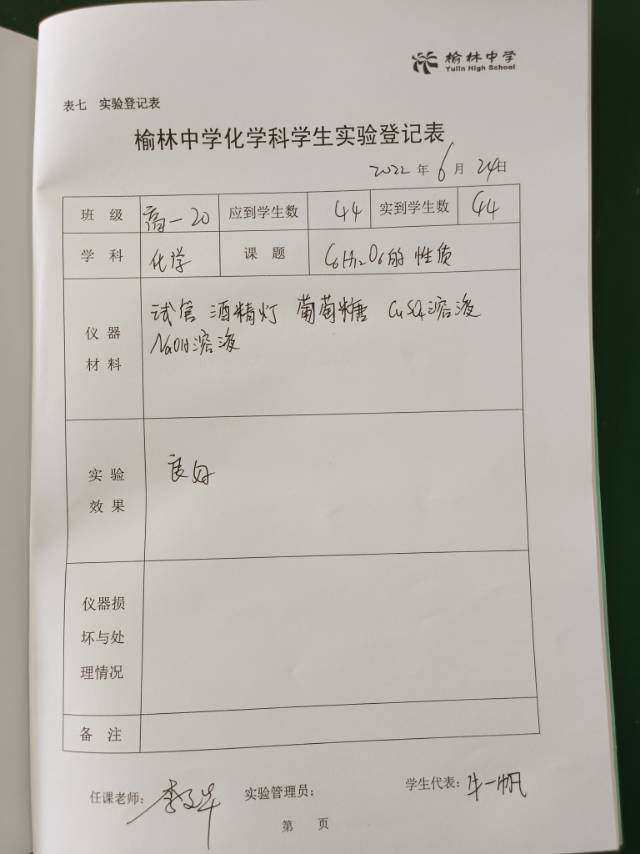 榆林中学
Yulin High School
表七 实验登记表
榆林中学化学科学生实验登记表
2022 年 6 月 24 日
班 级 高一20 应到学生数 44 实到学生数 44
学 科 化学 课 题 C6H12O6的性质
仪 器
材 料
试管 酒精灯 葡萄糖 CuSO4溶液
NaOH溶液
实 验
效 果
良好
仪器损
坏与处
理情况
备 注
任课老师: 实验管理员: 学生代表: 牛一帆
第 页